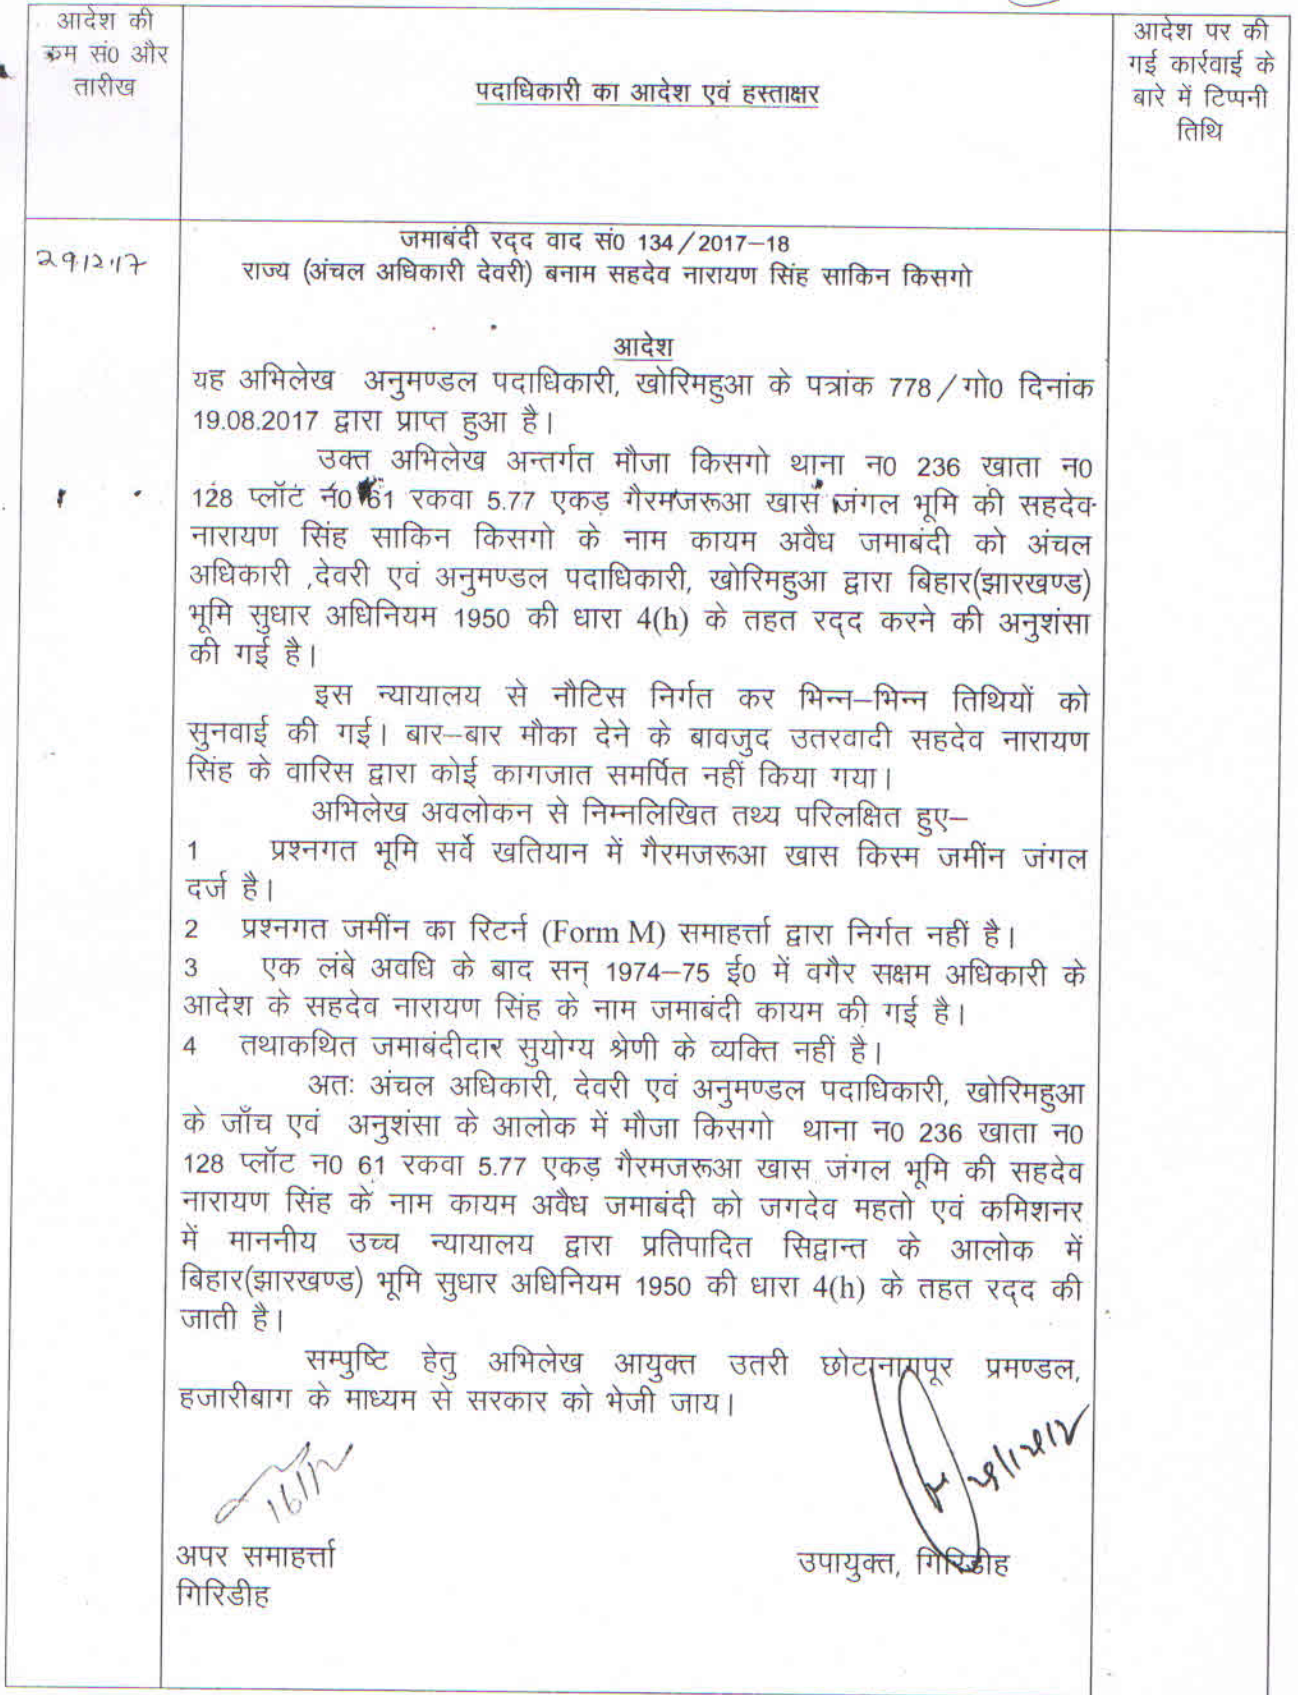 आदेश की
क्रम सं0 और
तारीख
पदाधिकारी का आदेश एवं हस्ताक्षर
आदेश पर की
गई कार्रवाई के
बारे में टिप्पनी
तिथि
29.12.17
जमाबंदी रद्द वाद सं0 134/2017–18
राज्य (अंचल अधिकारी देवरी) बनाम सहदेव नारायण सिंह साकिन किसगो
आदेश
यह अभिलेख अनुमण्डल पदाधिकारी, खोरिमहुआ के पत्रांक 778/गो0 दिनांक
19.08.2017 द्वारा प्राप्त हुआ है।
उक्त अभिलेख अन्तर्गत मौजा किसगो थाना न0 236 खाता न0
128 प्लॉट न0 61 रकवा 5.77 एकड़ गैरमजरूआ खास जंगल भूमि की सहदेव
नारायण सिंह साकिन किसगो के नाम कायम अवैध जमाबंदी को अंचल
अधिकारी ,देवरी एवं अनुमण्डल पदाधिकारी, खोरिमहुआ द्वारा बिहार(झारखण्ड)
भूमि सुधार अधिनियम 1950 की धारा 4(h) के तहत रद्द करने की अनुशंसा
की गई है।
इस न्यायालय से नौटिस निर्गत कर भिन्न–भिन्न तिथियों को
सुनवाई की गई। बार–बार मौका देने के बावजुद उतरवादी सहदेव नारायण
सिंह के वारिस द्वारा कोई कागजात समर्पित नहीं किया गया।
अभिलेख अवलोकन से निम्नलिखित तथ्य परिलक्षित हुए–
1 प्रश्नगत भूमि सर्वे खतियान में गैरमजरूआ खास किस्म जमींन जंगल
दर्ज है।
2 प्रश्नगत जमींन का रिटर्न (Form M) समाहर्त्ता द्वारा निर्गत नहीं है।
3 एक लंबे अवधि के बाद सन् 1974–75 ई0 में वगैर सक्षम अधिकारी के
आदेश के सहदेव नारायण सिंह के नाम जमाबंदी कायम की गई है।
4 तथाकथित जमाबंदीदार सुयोग्य श्रेणी के व्यक्ति नहीं है।
अतः अंचल अधिकारी, देवरी एवं अनुमण्डल पदाधिकारी, खोरिमहुआ
के जाँच एवं अनुशंसा के आलोक में मौजा किसगो थाना न0 236 खाता न0
128 प्लॉट न0 61 रकवा 5.77 एकड़ गैरमजरूआ खास जंगल भूमि की सहदेव
नारायण सिंह के नाम कायम अवैध जमाबंदी को जगदेव महतो एवं कमिशनर
में माननीय उच्च न्यायालय द्वारा प्रतिपादित सिद्वान्त के आलोक में
बिहार(झारखण्ड) भूमि सुधार अधिनियम 1950 की धारा 4(h) के तहत रद्द की
जाती है।
सम्पुष्टि हेतु अभिलेख आयुक्त उतरी छोटानागपूर प्रमण्डल,
हजारीबाग के माध्यम से सरकार को भेजी जाय।
अपर समाहर्त्ता
गिरिडीह
उपायुक्त, गिरिडीह